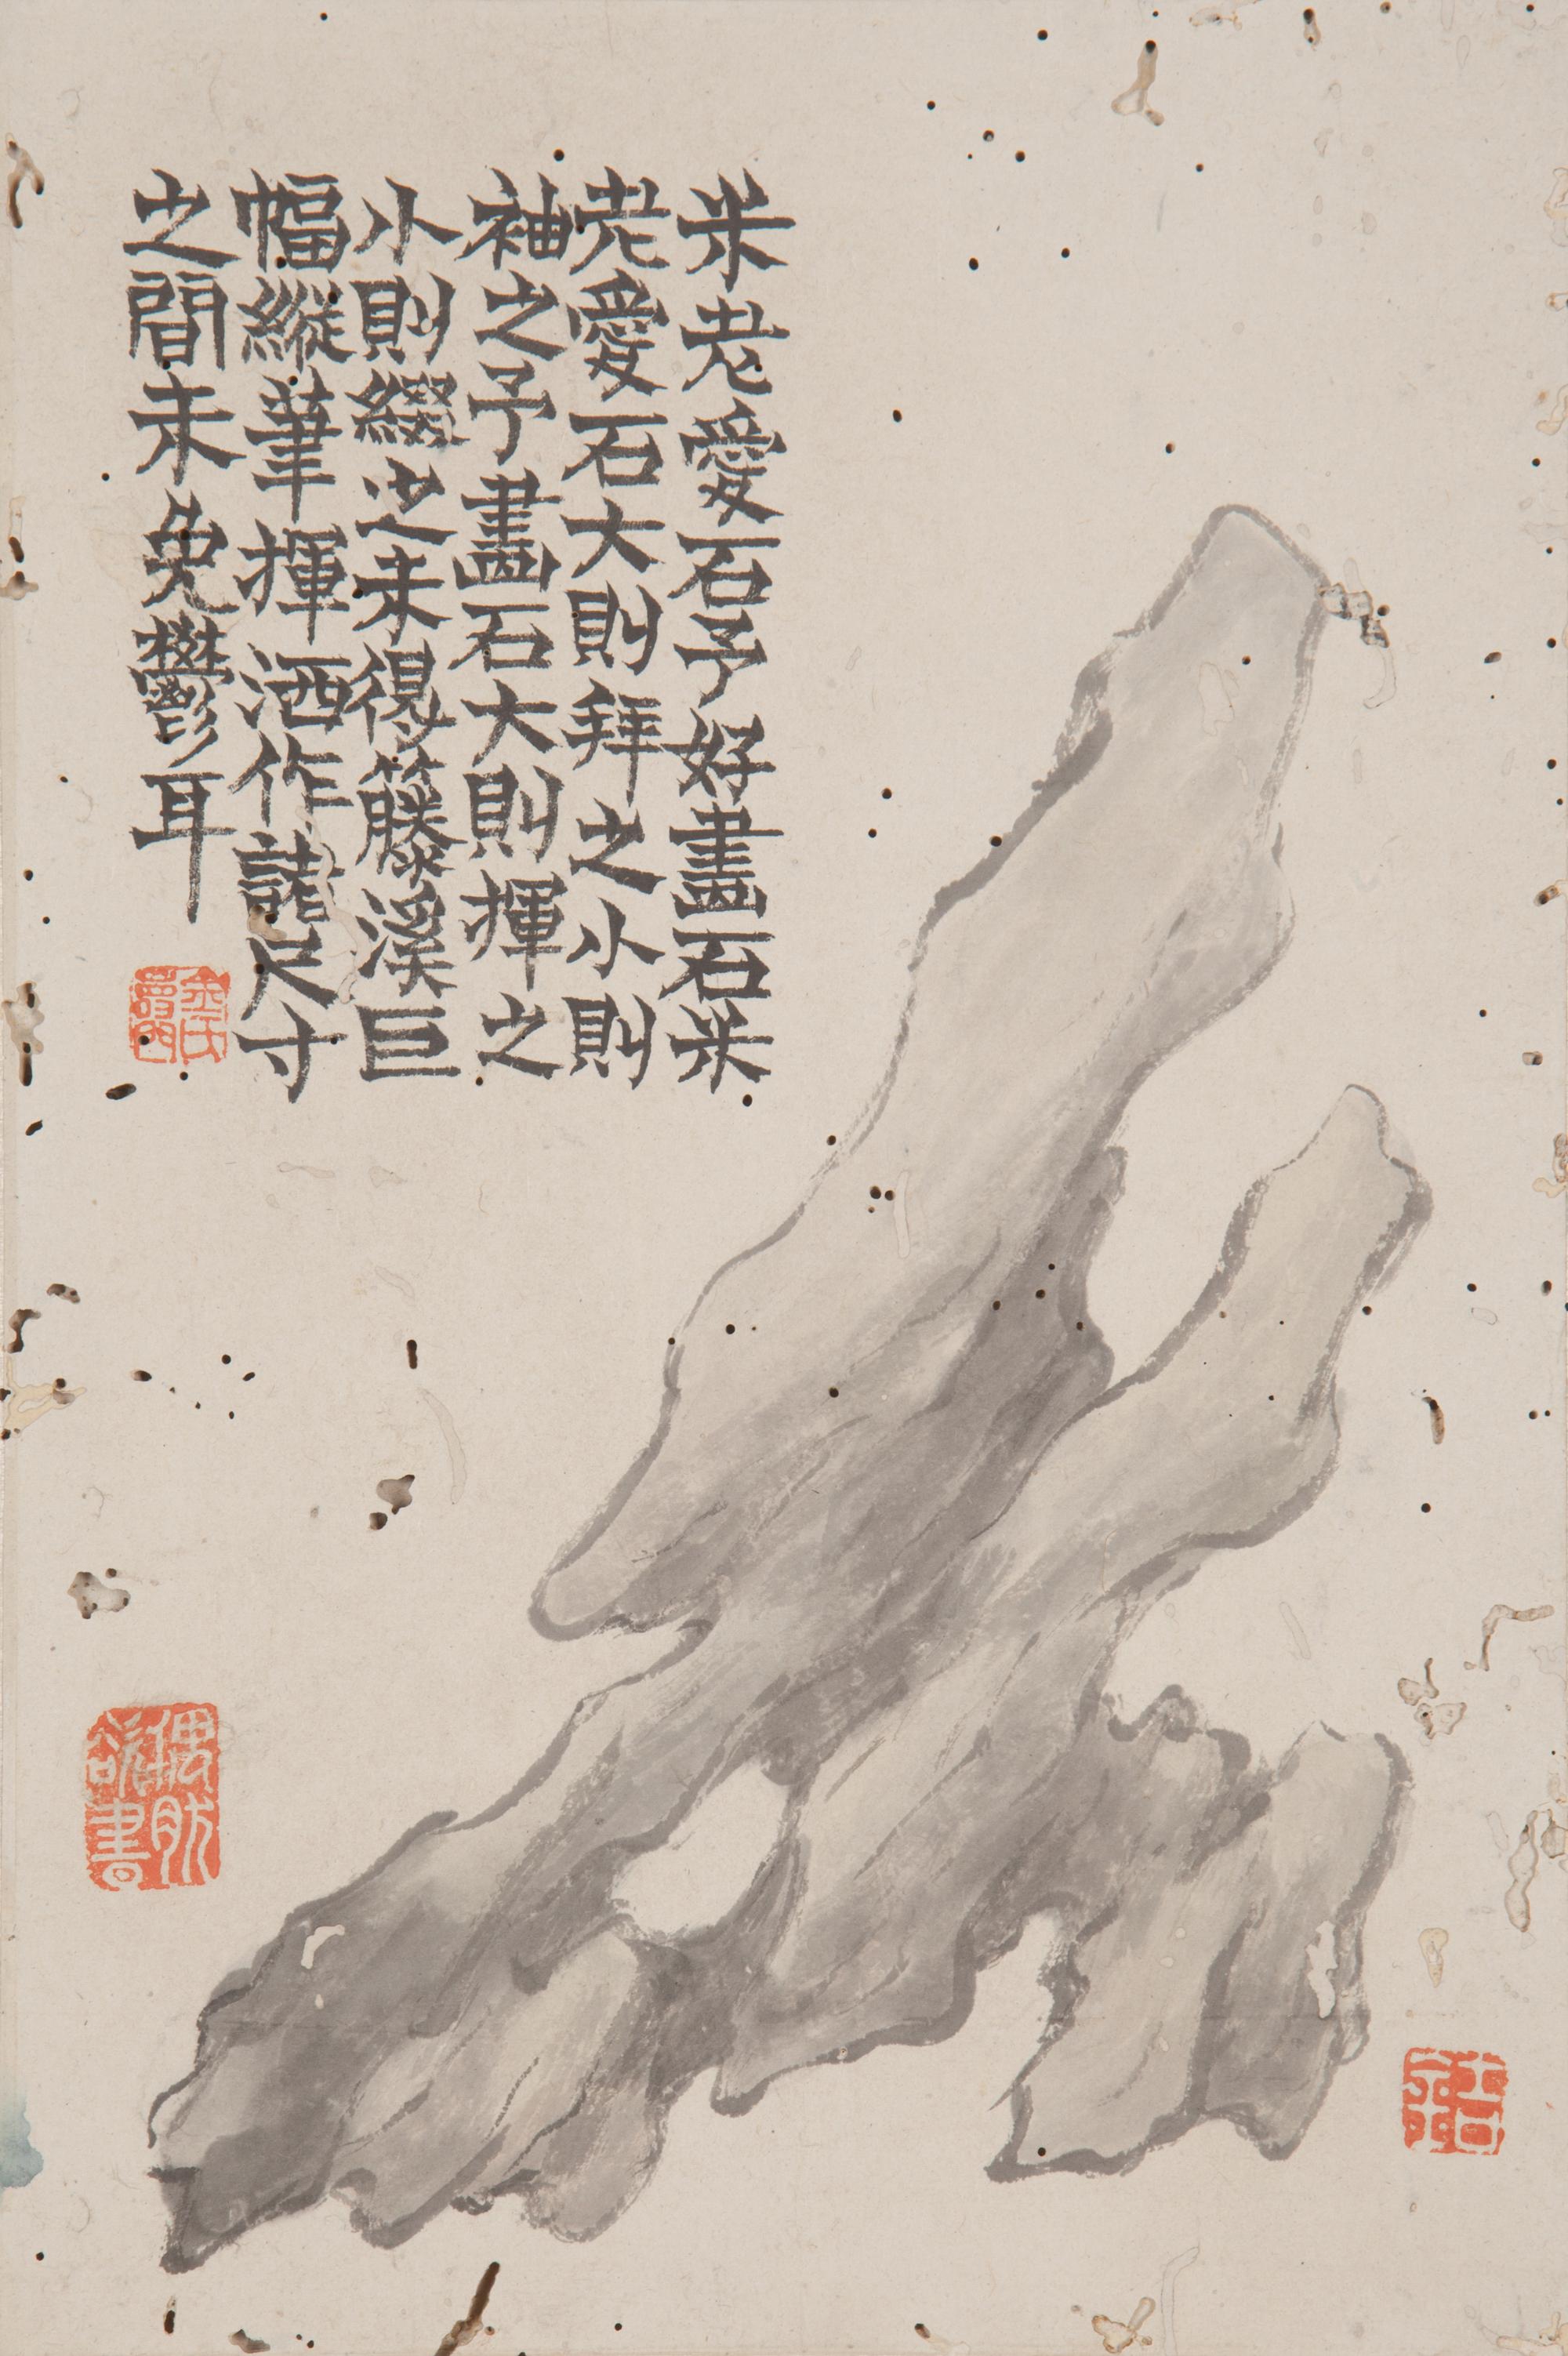 米老愛石予好畫石米
老愛石大則拜之小則
袖之予畫石大則揮之
小則綴之未得籐溪巨
幅縱筆揮洒作諸尺寸
之間未免鬱耳
金氏